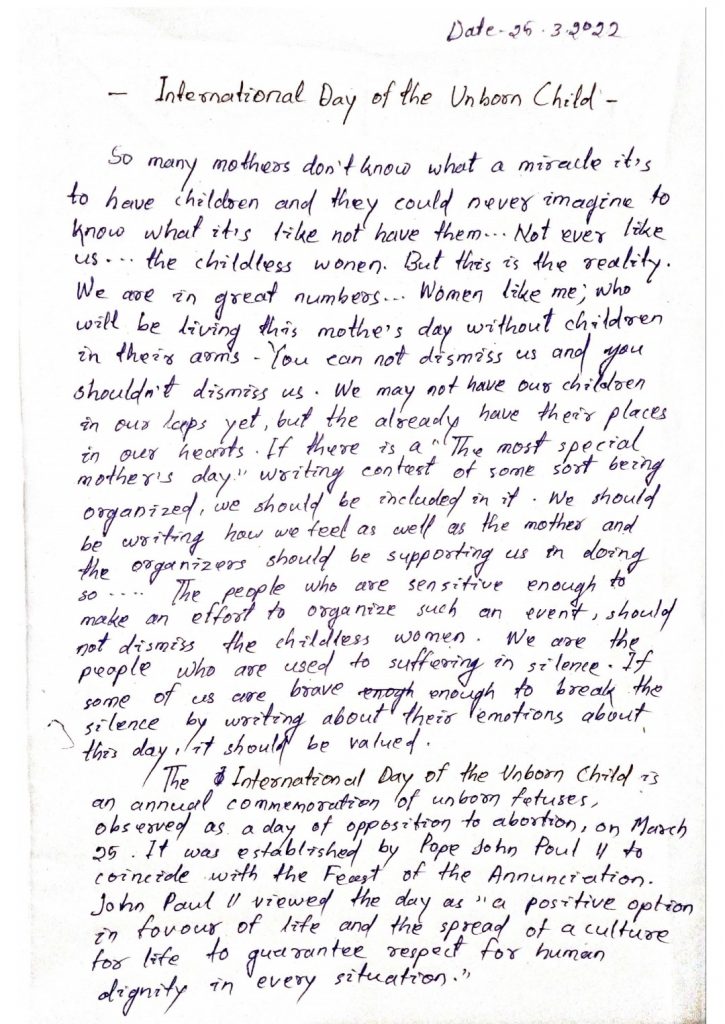 Date - 25.3.2022
- International Day of the Unborn Child -
So many mothers don't know what a miracle it's
to have children and they could never imagine to
know what it's like not have them... Not ever like
us... the childless wonen. But this is the reality.
We are in great numbers... Women like me; who
will be living this mothe's day without children
in their arms - You can not dismiss us and you
shouldn't dismiss us. We may not have our children
in our laps yet, but the already have their places
in our hearts. If there is a "The most special
mother's day" writing contest of some sort being
organized, we should be included in it. We should
be writing how we feel as well as the mother and
the organizers should be supporting us in doing
so .... The people who are sensitive enough to
make an effort to organize such an event, should
not dismiss the childless women. We are the
people who are used to suffering in silence. If
some of us are brave enogh enough to break the
silence by writing about their emotions about
this day, it should be valued.
The International Day of the Unborn Child is
an annual commemoration of unborn fetuses,
observed as a day of opposition to abortion, on March
25. It was established by Pope John Poul II to
coincide with the Feast of the Annunciation.
John Paul II viewed the day as "a positive option
in favour of life and the spread of a culture
for life to guarantee respect for human
dignity in every situation."